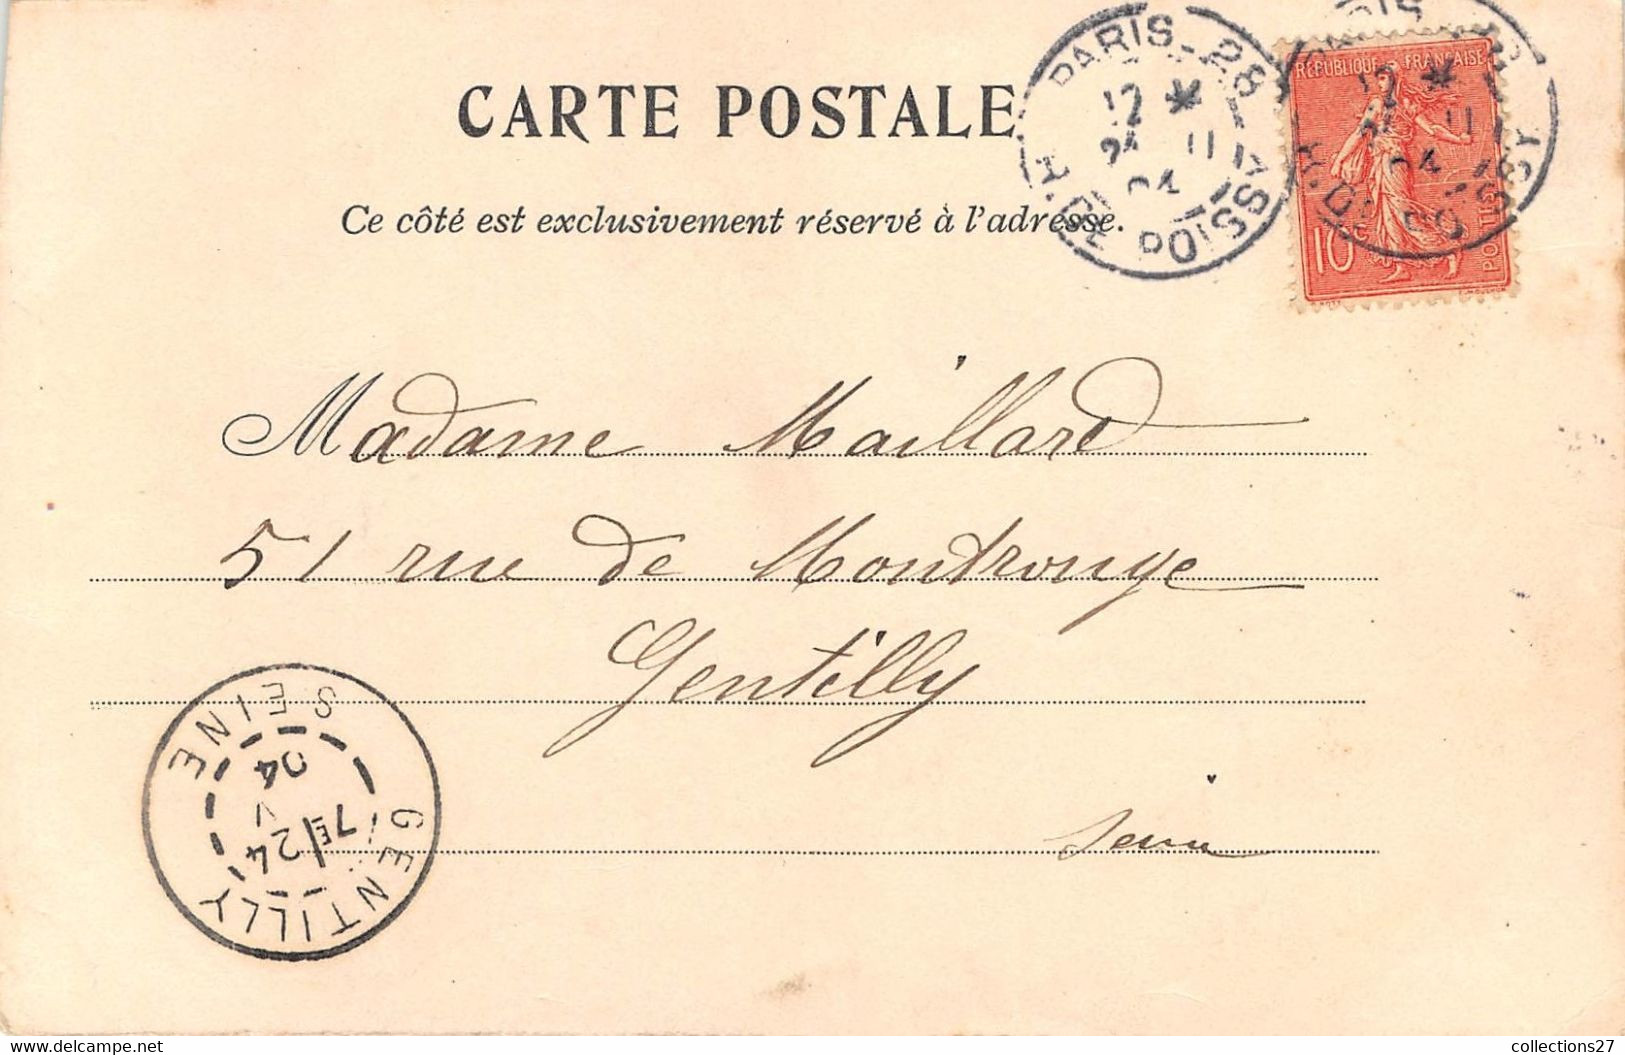 CARTE POSTALE
Ce côté est exclusivement réservé à l'adresse.
PARIS - 28
12 *
24 11
04
R. DE POISSY
RÉPUBLIQUE FRANÇAISE
10
POSTES
12 *
11
04
R. DE POISSY
Madame Maillard
51 rue de Montrouge
Gentilly
Seine
GENTILLY
SEINE
7E 24
04
delcampe.net
collections27